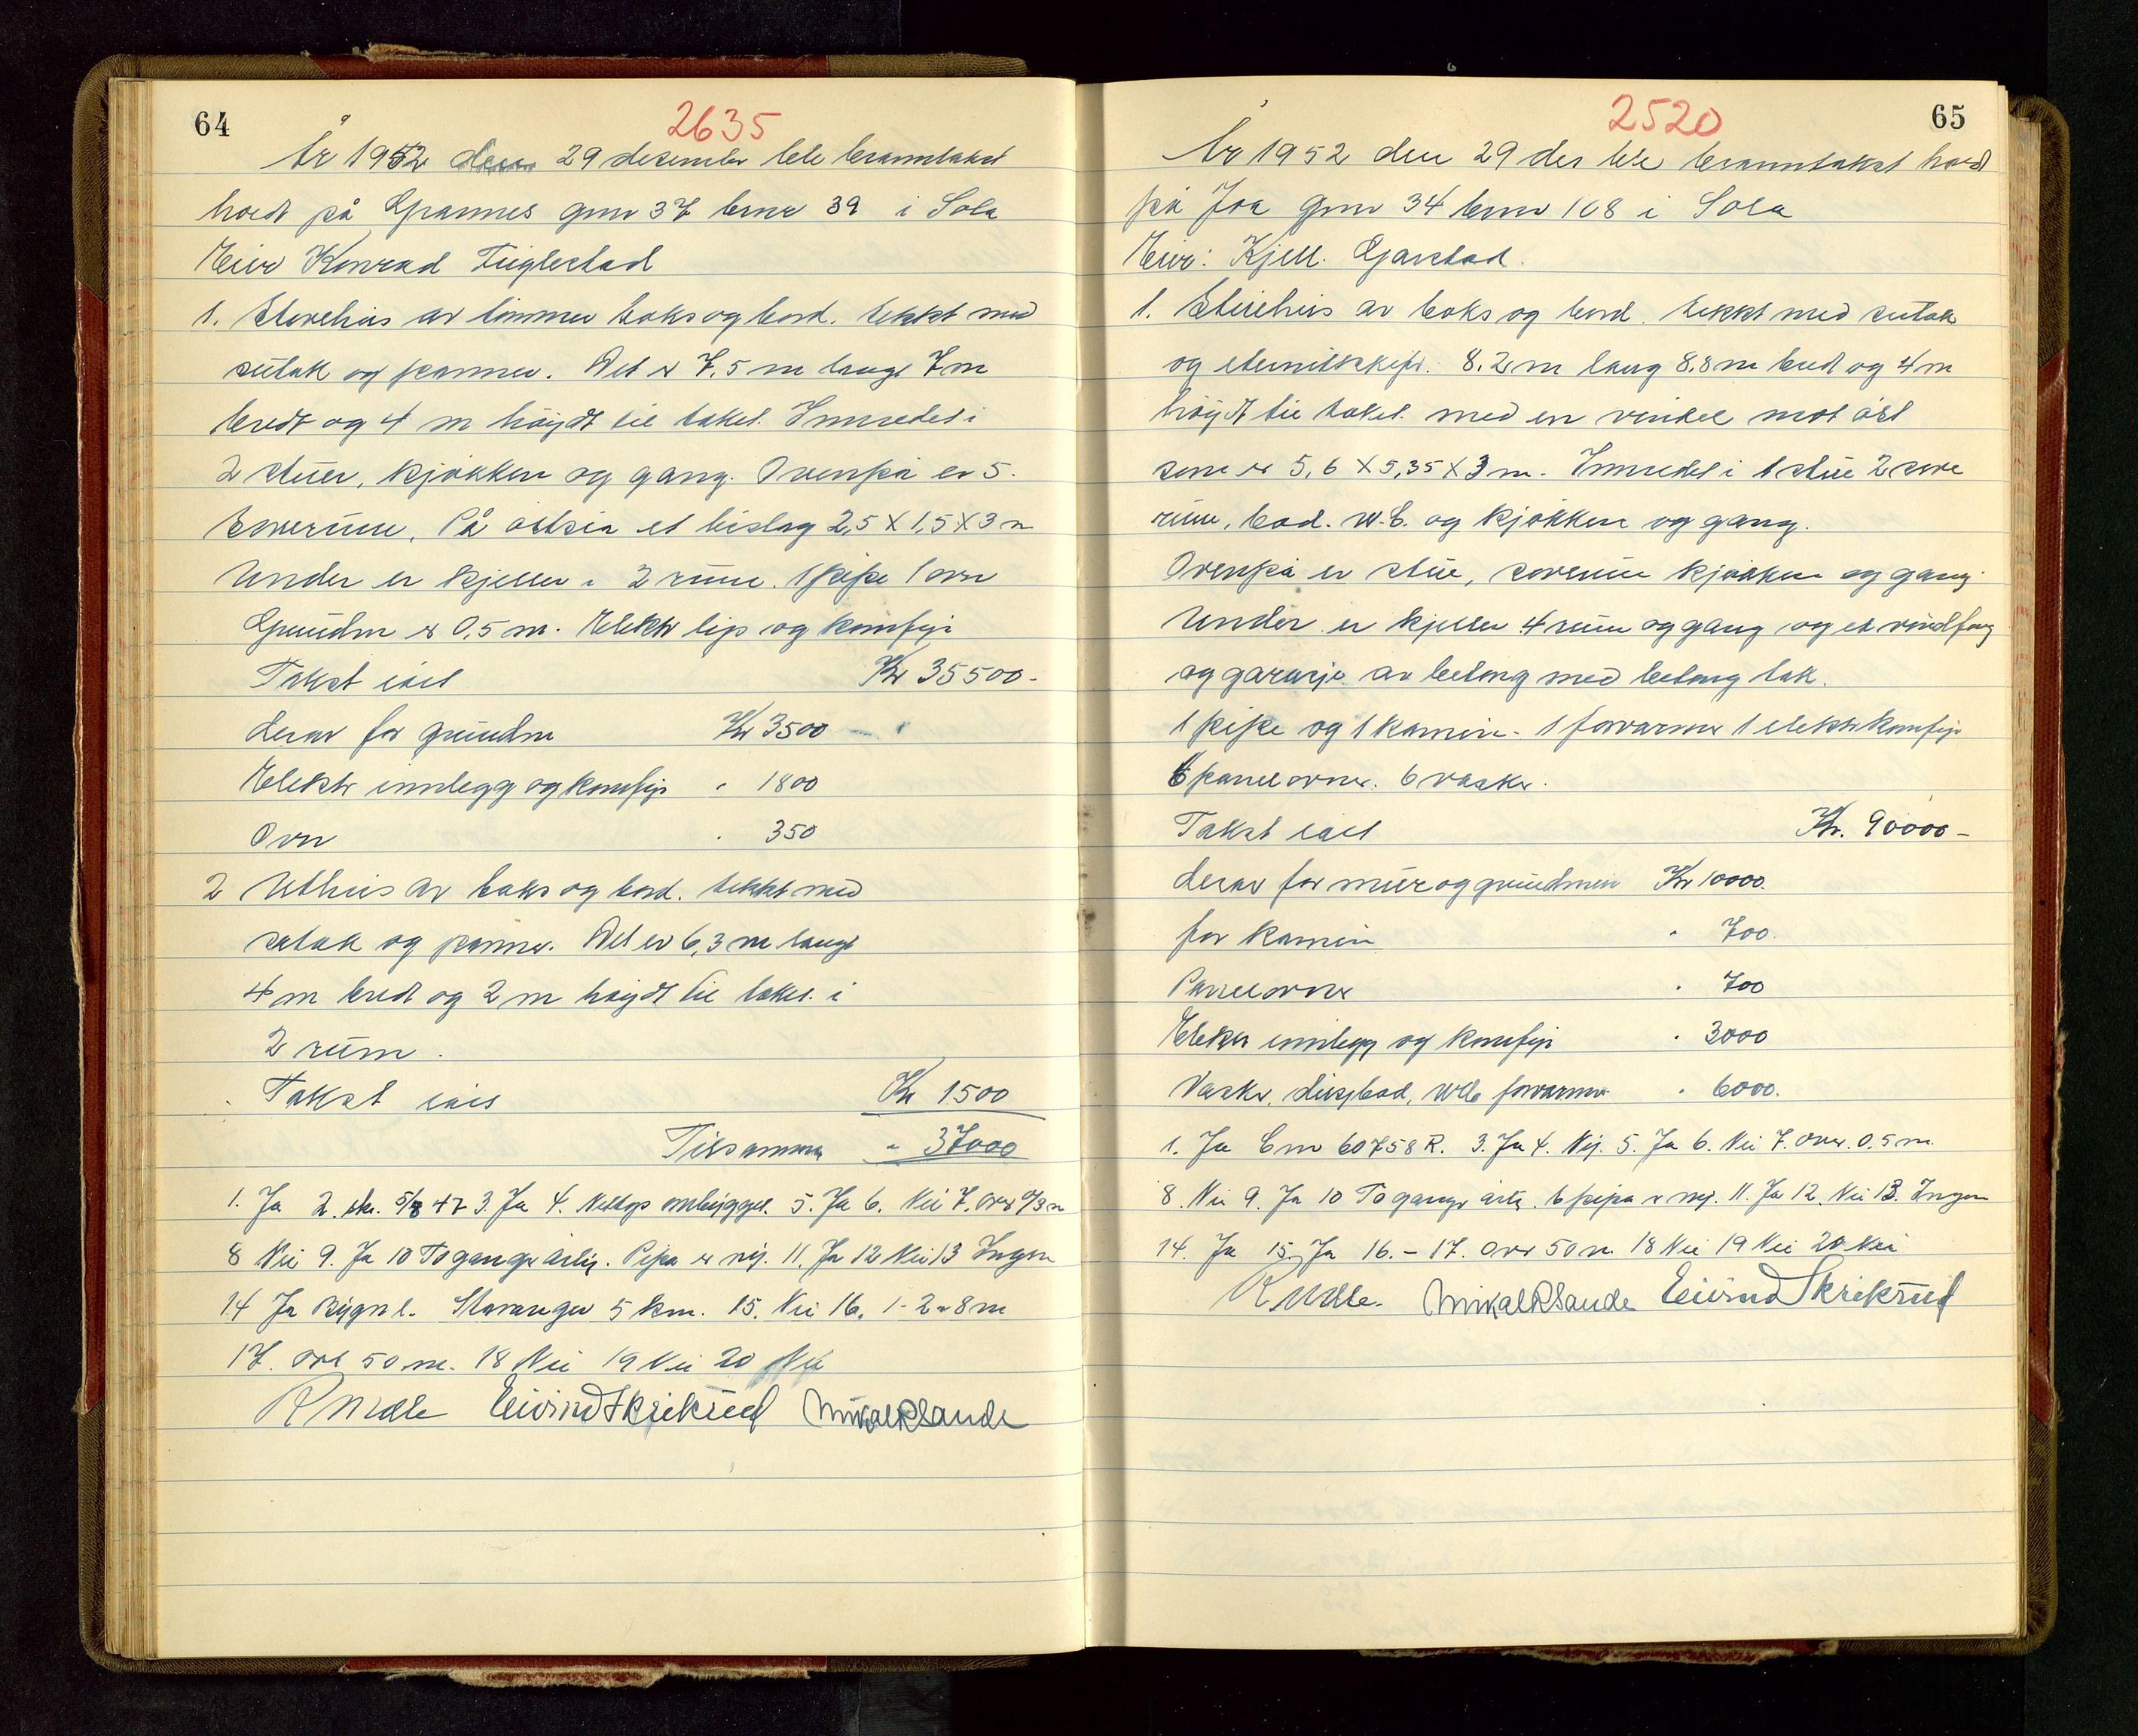 64
2635
År 1952 den 29 desember ble branntakst
holdt på Grannes gnr 37 bnr 39 i Sola
Eier Konrad Tuglestad
1. Stovehus av tømmer boks og bord. tekkt med
sutak og panner. Det er 7,5 m langt 7 m
bredt og 4 m høydt til taket. Innredet i
2 stuer, kjøkken og gang. Ovenpå er 5
soverum. På østsia et bislag 2,5 X 1,5 X 3 m
Under er kjeller i 2 rum. 1 pipe 1 ovn
Grundm er 0,5 m. Elektr lys og komfyr
Takst ialt Kr 35500-
derav for grundm Kr 3500
Elektr innlegg og komfyr " 1800
Ovn " 350
2 Uthus av boks og bord. tekkt med
sutak og panner. Det er 6,3 m langt
4 m bredt og 2 m høydt til taket i
2 rum.
Takst ialt Kr 1500
Tilsammen " 37000
1. Ja 2. 5/8 47 3. Ja 4. Nettop ombygget. 5. Ja 6. Nei 7. over 0,3 m
8 Nei 9. Ja 10 To ganger årlig. Pipa er ny. 11. Ja 12 Nei 13 Ingen
14 Ja Bygn l. Stavanger 5 km. 15. Nei 16. 1-2 = 8 m
17. Over 50 m. 18 Nei 19 Nei 20 Nei
Eivind Skrikrud Mikal R Sande
65
2520
År 1952 den 29 des ble branntakst holdt
på Joa gnr 34 bnr 108 i Sola
Eier: Kjell. Gjerstad.
1. Stuehus av boks og bord. tekkt med sutak
og eternitskifr. 8.2 m lang 8,8 m bredt og 4 m
høydt til taket. med en vinkel mot øst
som er 5,6 X 5,35 X 3 m. Innredet i 1 stue 2 sove
rum, bad. W.C. og kjøkken og gang.
Ovenpå er stue, soverum kjøkken og gang
Under er kjeller 4 rum og gang og et vindfang
og garasje av betong med betong tak.
1 pipe og 1 kamin. 1 forvarmer 1 elektr komfyr
6 panelovner. 6 vasker.
Takst ialt Kr. 90000-
derav for mur og grundmur Kr 10000.
for kamin " 700.
Panelovner " 700
Elektr innlegg og komfyr " 3000
Vasker, dusjbad, WC forvarmer " 6000.
1. Ja Bnr 60758 R. 3. Ja 4. Ny. 5. Ja 6. Nei 7. over. 0.5 m
8. Nei 9. Ja 10 To ganger årlig. pipa er ny. 11. Ja 12. Nei 13. Ingen
14. Ja 15. Ja 16. - 17. Over 50 m 18 Nei 19 Nei 20 Nei
Mikal R Sande Eivind Skrikrud